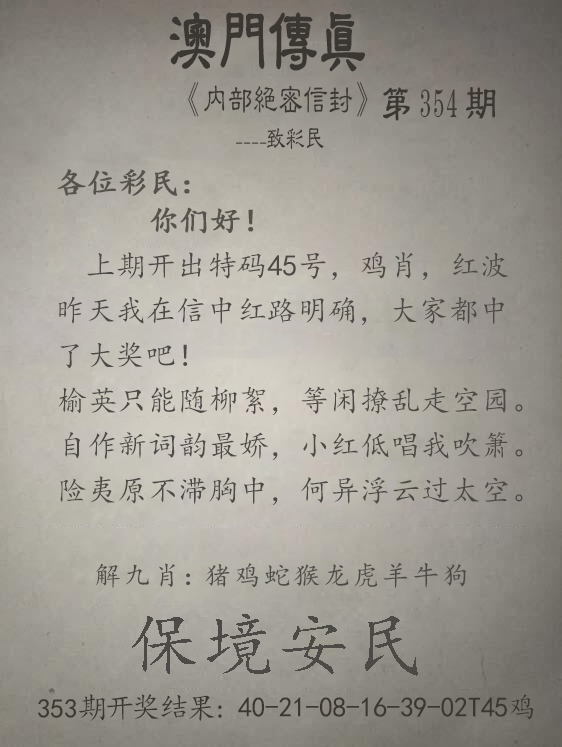 澳門傳眞
《内部絕密信封》第354期
----致彩民
各位彩民：
你们好！
上期开出特码45号，鸡肖，红波
昨天我在信中红路明确，大家都中
了大奖吧！
榆英只能随柳絮，等闲撩乱走空园。
自作新词韵最娇，小红低唱我吹箫。
险夷原不滞胸中，何异浮云过太空。
解九肖：猪鸡蛇猴龙虎羊牛狗
保境安民
353期开奖结果：40-21-08-16-39-02T45鸡